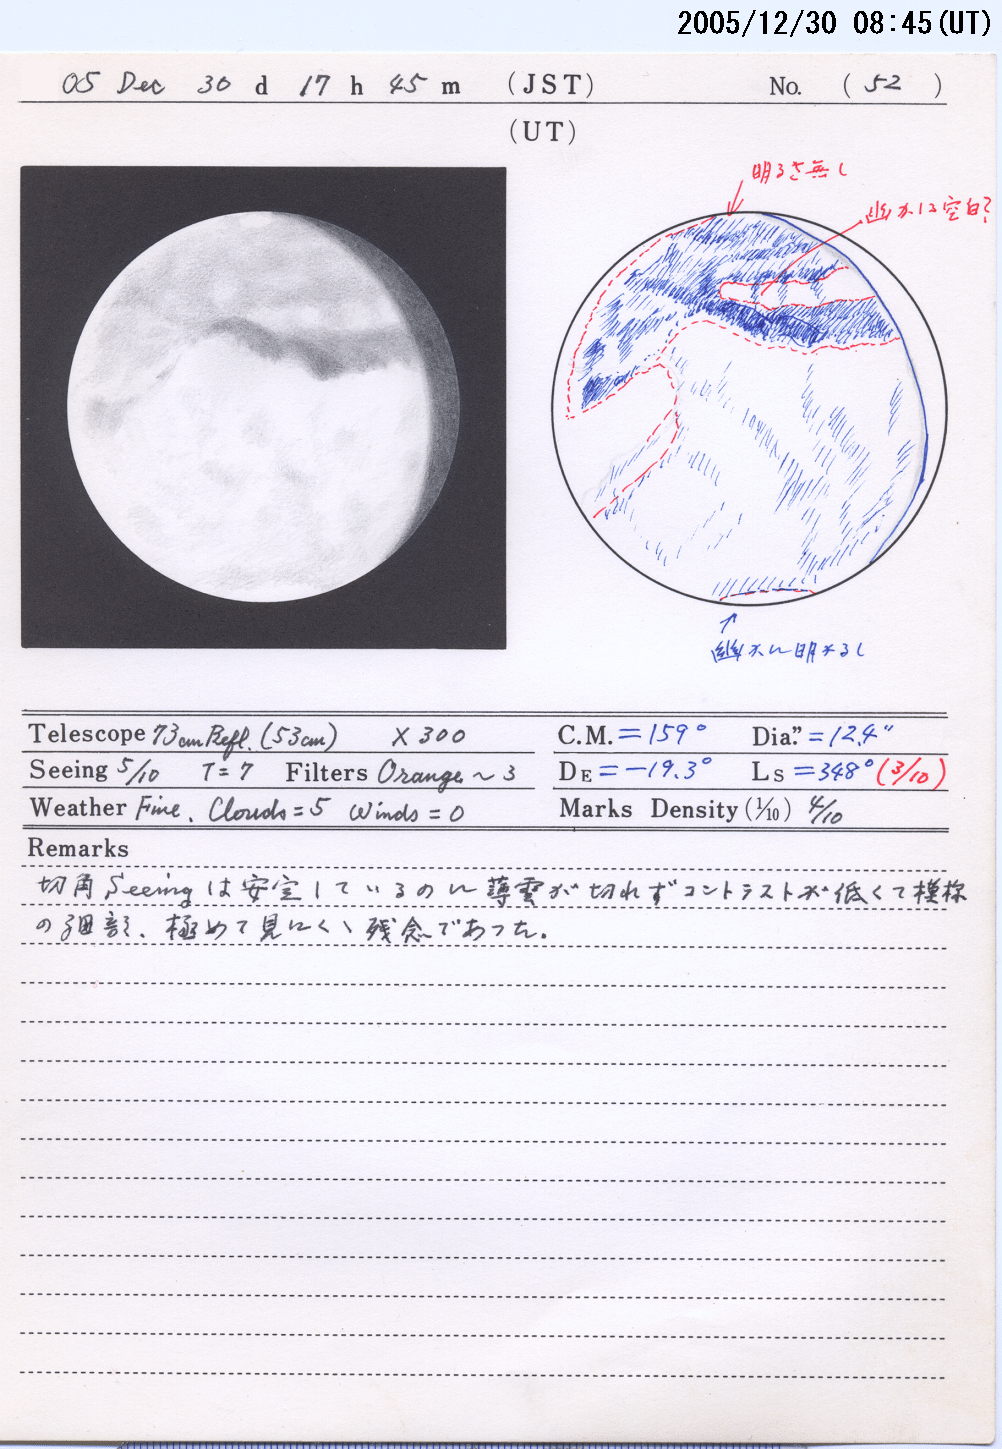 2005/12/30 08:45(UT)
05 Dec 30 d 17 h 45 m (JST) No. (52)
(UT)
明るさ無し
幽かに空白?
幽かに明かるし
Telescope 73cm Refl. (53cm) × 300
C.M. = 159° Dia." = 12.4"
Seeing 5/10 T = 7 Filters Orange ~ 3
DE = -19.3° Ls = 348° (3/10)
Weather Fine. Clouds = 5 Winds = 0
Marks Density (1/10) 4/10
Remarks
切角 Seeing は安定しているのに薄雲が切れずコントラストが低くて模様
の細部、極めて見にくく残念であった。